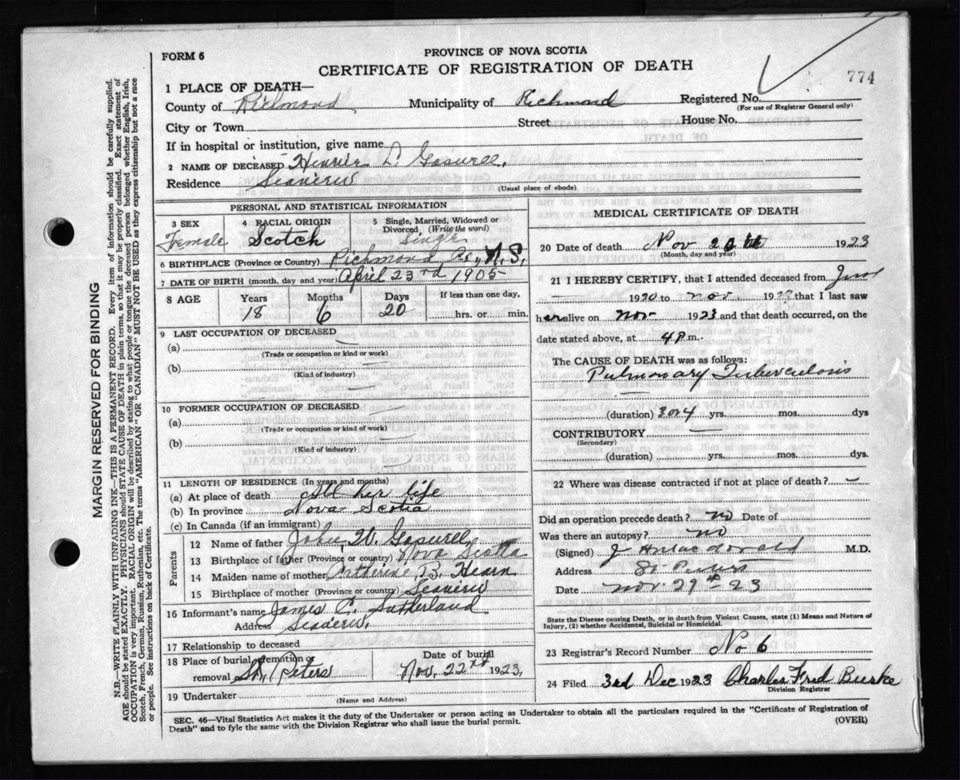 FORM 6
PROVINCE OF NOVA SCOTIA
CERTIFICATE OF REGISTRATION OF DEATH
774
1 PLACE OF DEATH—
County of Richmond Municipality of Richmond Registered No.
(For use of Registrar General only)
City or Town Street House No.
If in hospital or institution, give name
2 NAME OF DECEASED D.
Residence Seaview
(Usual place of abode)
PERSONAL AND STATISTICAL INFORMATION
3 SEX 4 RACIAL ORIGIN 5 Single, Married, Widowed or Divorced (Write the word)
Female Scotch Single
6 BIRTHPLACE (Province or Country) Richmond Co., N.S.
7 DATE OF BIRTH (month, day and year) April 23rd 1905
8 AGE Years Months Days If less than one day,
18 6 20 hrs. or min.
9 LAST OCCUPATION OF DECEASED —
(a)
(Trade or occupation or kind or work)
(b)
(Kind of industry)
10 FORMER OCCUPATION OF DECEASED
(a)
(Trade or occupation or kind or work)
(b)
(Kind of industry)
11 LENGTH OF RESIDENCE (In years and months)
(a) At place of death All her life
(b) In province Nova Scotia
(c) In Canada (if an immigrant)
Parents
12 Name of father John
13 Birthplace of father (Province or country) Nova Scotia
14 Maiden name of mother Catherine B. Hearn
15 Birthplace of mother (Province or country) Seaview
16 Informant's name James C. Sutherland
Address Seaview.
17 Relationship to deceased
18 Place of burial, cremation or removal St. Peters Date of burial Nov. 22nd 1923
19 Undertaker
(Name and Address)
MEDICAL CERTIFICATE OF DEATH
20 Date of death Nov 20th 1923
(Month, day and year)
21 I HEREBY CERTIFY, that I attended deceased from
1920 to Nov 1923 that I last saw
her alive on Nov 1923 and that death occurred, on the
date stated above, at 4 P m.
The CAUSE OF DEATH was as follows:
Pulmonary Tuberculosis
(duration) 3 or 4 yrs. mos. dys
CONTRIBUTORY —
(Secondary)
(duration) yrs. mos. dys.
22 Where was disease contracted if not at place of death? —
Did an operation precede death? no Date of
Was there an autopsy? no
(Signed) M.D.
Address St. Peters
Date Nov 29th 23
State the Disease causing Death, or in death from Violent Causes, state (1) Means and Nature of Injury, (2) whether Accidental, Suicidal or Homicidal.
23 Registrar's Record Number No 6
24 Filed 3rd Dec 1923 Charles Fred Burke
Division Registrar
SEC. 46—Vital Statistics Act makes it the duty of the Undertaker or person acting as Undertaker to obtain all the particulars required in the "Certificate of Registration of
Death" and to fyle the same with the Division Registrar who shall issue the burial permit. (OVER)
MARGIN RESERVED FOR BINDING
N.B.—WRITE PLAINLY WITH UNFADING INK—THIS IS A PERMANENT RECORD. Every item of information should be carefully supplied.
AGE should be stated EXACTLY. PHYSICIANS should STATE CAUSE OF DEATH in plain terms, so that it may be properly classified. Exact statement of
OCCUPATION is very important. RACIAL ORIGIN will be described by stating to what people or tongue the deceased person belonged, whether English, Irish,
Scotch, French, German, Russian, Ruthenian, etc. The terms "AMERICAN" OR "CANADIAN" MUST NOT BE USED as they express citizenship but not a race
or people. See instructions on back of Certificate.